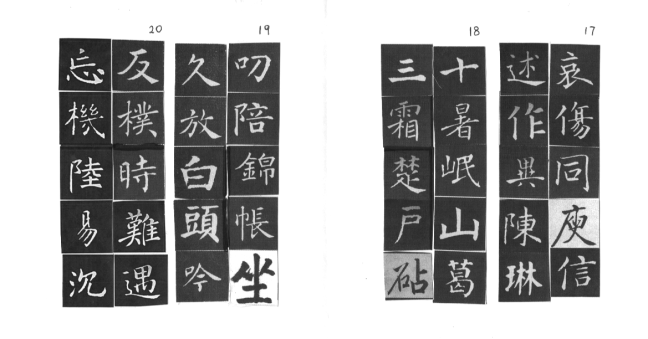 17
哀傷同庾信
述作異陳琳
18
十暑岷山葛
三霜楚戶砧
19
叨陪錦帳坐
久放白頭吟
20
反樸時難遇
忘機陸易沉